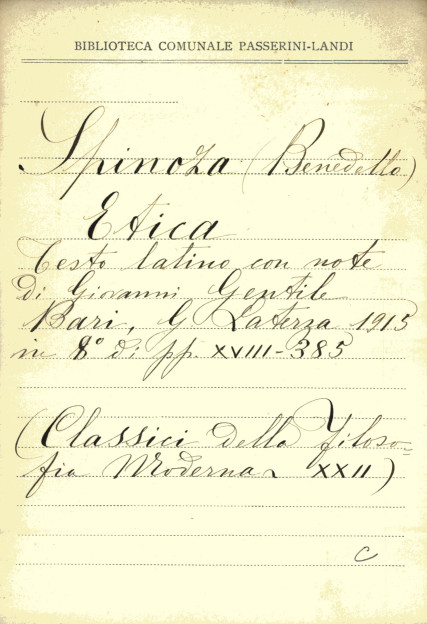 BIBLIOTECA COMUNALE PASSERINI-LANDI
Spinoza (Benedetto)
Etica
Testo latino con note
di Giovanni Gentile
Bari, G. Laterza 1915
in 8° di pp. XVIII-385
(Classici della filoso=
fia Moderna XXII)
C